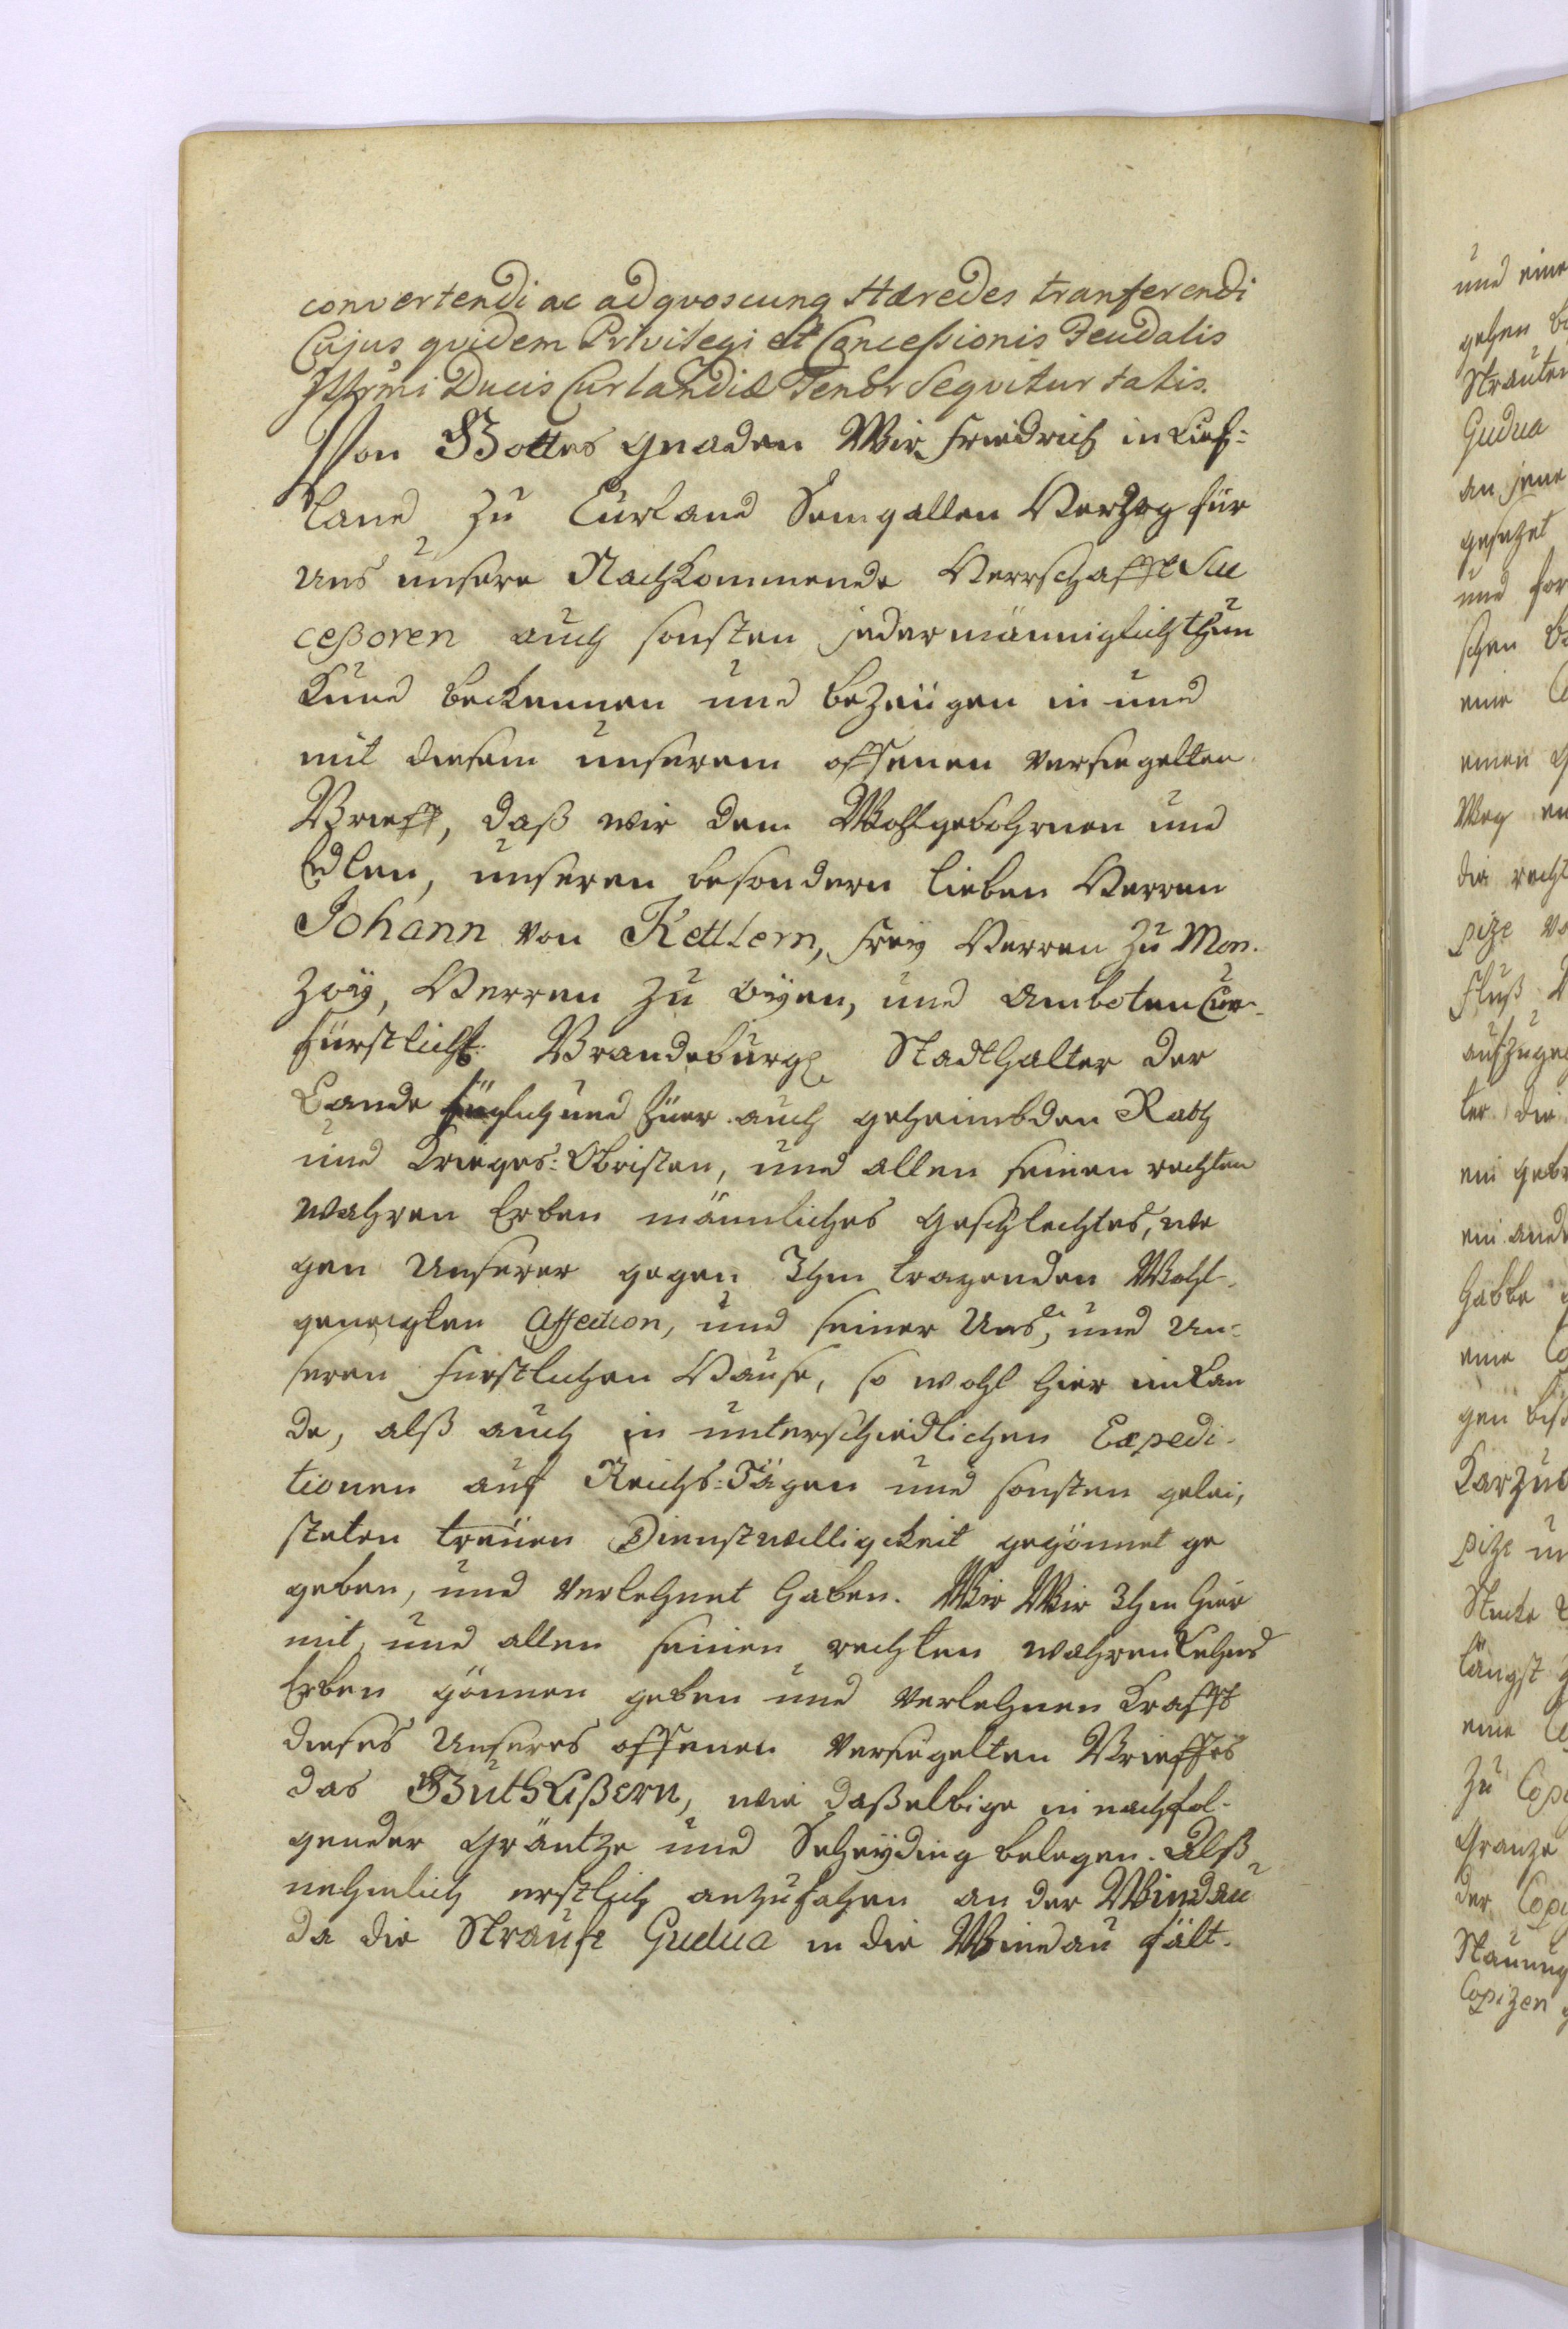 convertendi ac ad qvoscunq Hæredes tranferendi
Cujus qvidem Privilegi et Conceßionis Feudalis
Illtrmi Ducis Curlandiæ Tenor Seqvitur talis.
Von Gottes Gnaden Wir Friedrich in Lief-
land zu Curland Semgallen Herzog für
uns unsere Nachkommende Herrschafft Suc
ceßoren auch sonsten jedermänniglich thun
Kund bekennen und bezeügen in und
mit diesem unserem offenen versiegelten
Brieff, daß wir dem Wohlgebohrnen und
Edlen, unseren besondern lieben Herren
Johann von Kettlern, Frey Herren zu Mon-
zoÿ, Herren zu Oÿen, und Amboten Cur-
fürstlich: Brandeburg: Stadthalter der
Lande und auch geheimbden Rath
und Krieges-Obristen, und allen seinen rechten
wahren Erben männliches Geschlechtes, we
gen Unserer gegen Ihm tragenden Wohl-
geneigten Affection, und seiner Uns, und Un-
seren Fürstlichen Hause, so wohl hier im Lan
de, alß auch in unterschiedlichen Expedi-
tionen auf Reichs-Tägen und sonsten gelei,
steten treüen Dienstwilligkeit gegönnet ge
geben, und verlehnet haben. Wir Wir Ihm hier
mit, und allen seinen rechten wahren Lehns
Erben gönnen geben und verlehnen Krafft
dieses Unseres offenen versiegelten Brieffes
das Guth Lißern, wie daßelbige in nachfol-
gender Gräntze und Scheyding belegen. Alß
nehmlich erstlich anzufahen an der Windau
da die Strauße Gudua in die Windau fält.
und eine
gehen
Strauten
Gudua
an jene
gesezet
und for
schen
eine
einen
Weg
die recht
pize
Fluß
aufzuge
ter die
ein
ein ande
habbe
eine
gen
pize
Stucke
längst
eine
zu Copi
Gränze
der Copi
Copizen